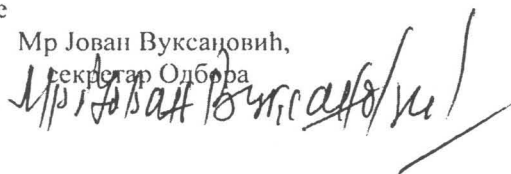 е
Мр Јован Вуксановић,
секретар Одбора
Мр Јован Вуксановић